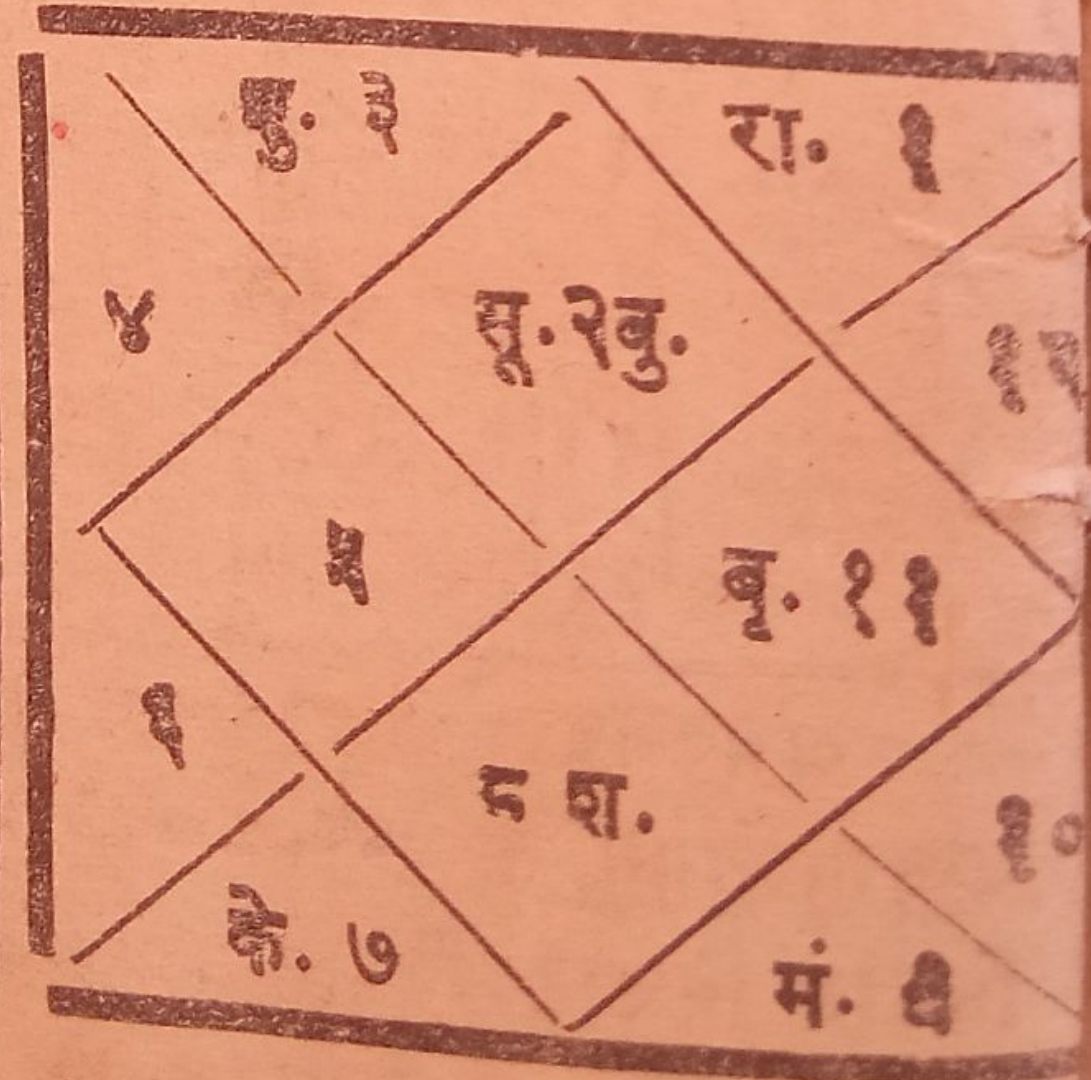 ३ रा. १
४ सू.२बु. १२
५ बृ. ११
६ ८ श. १०
के. ७ मं. ९